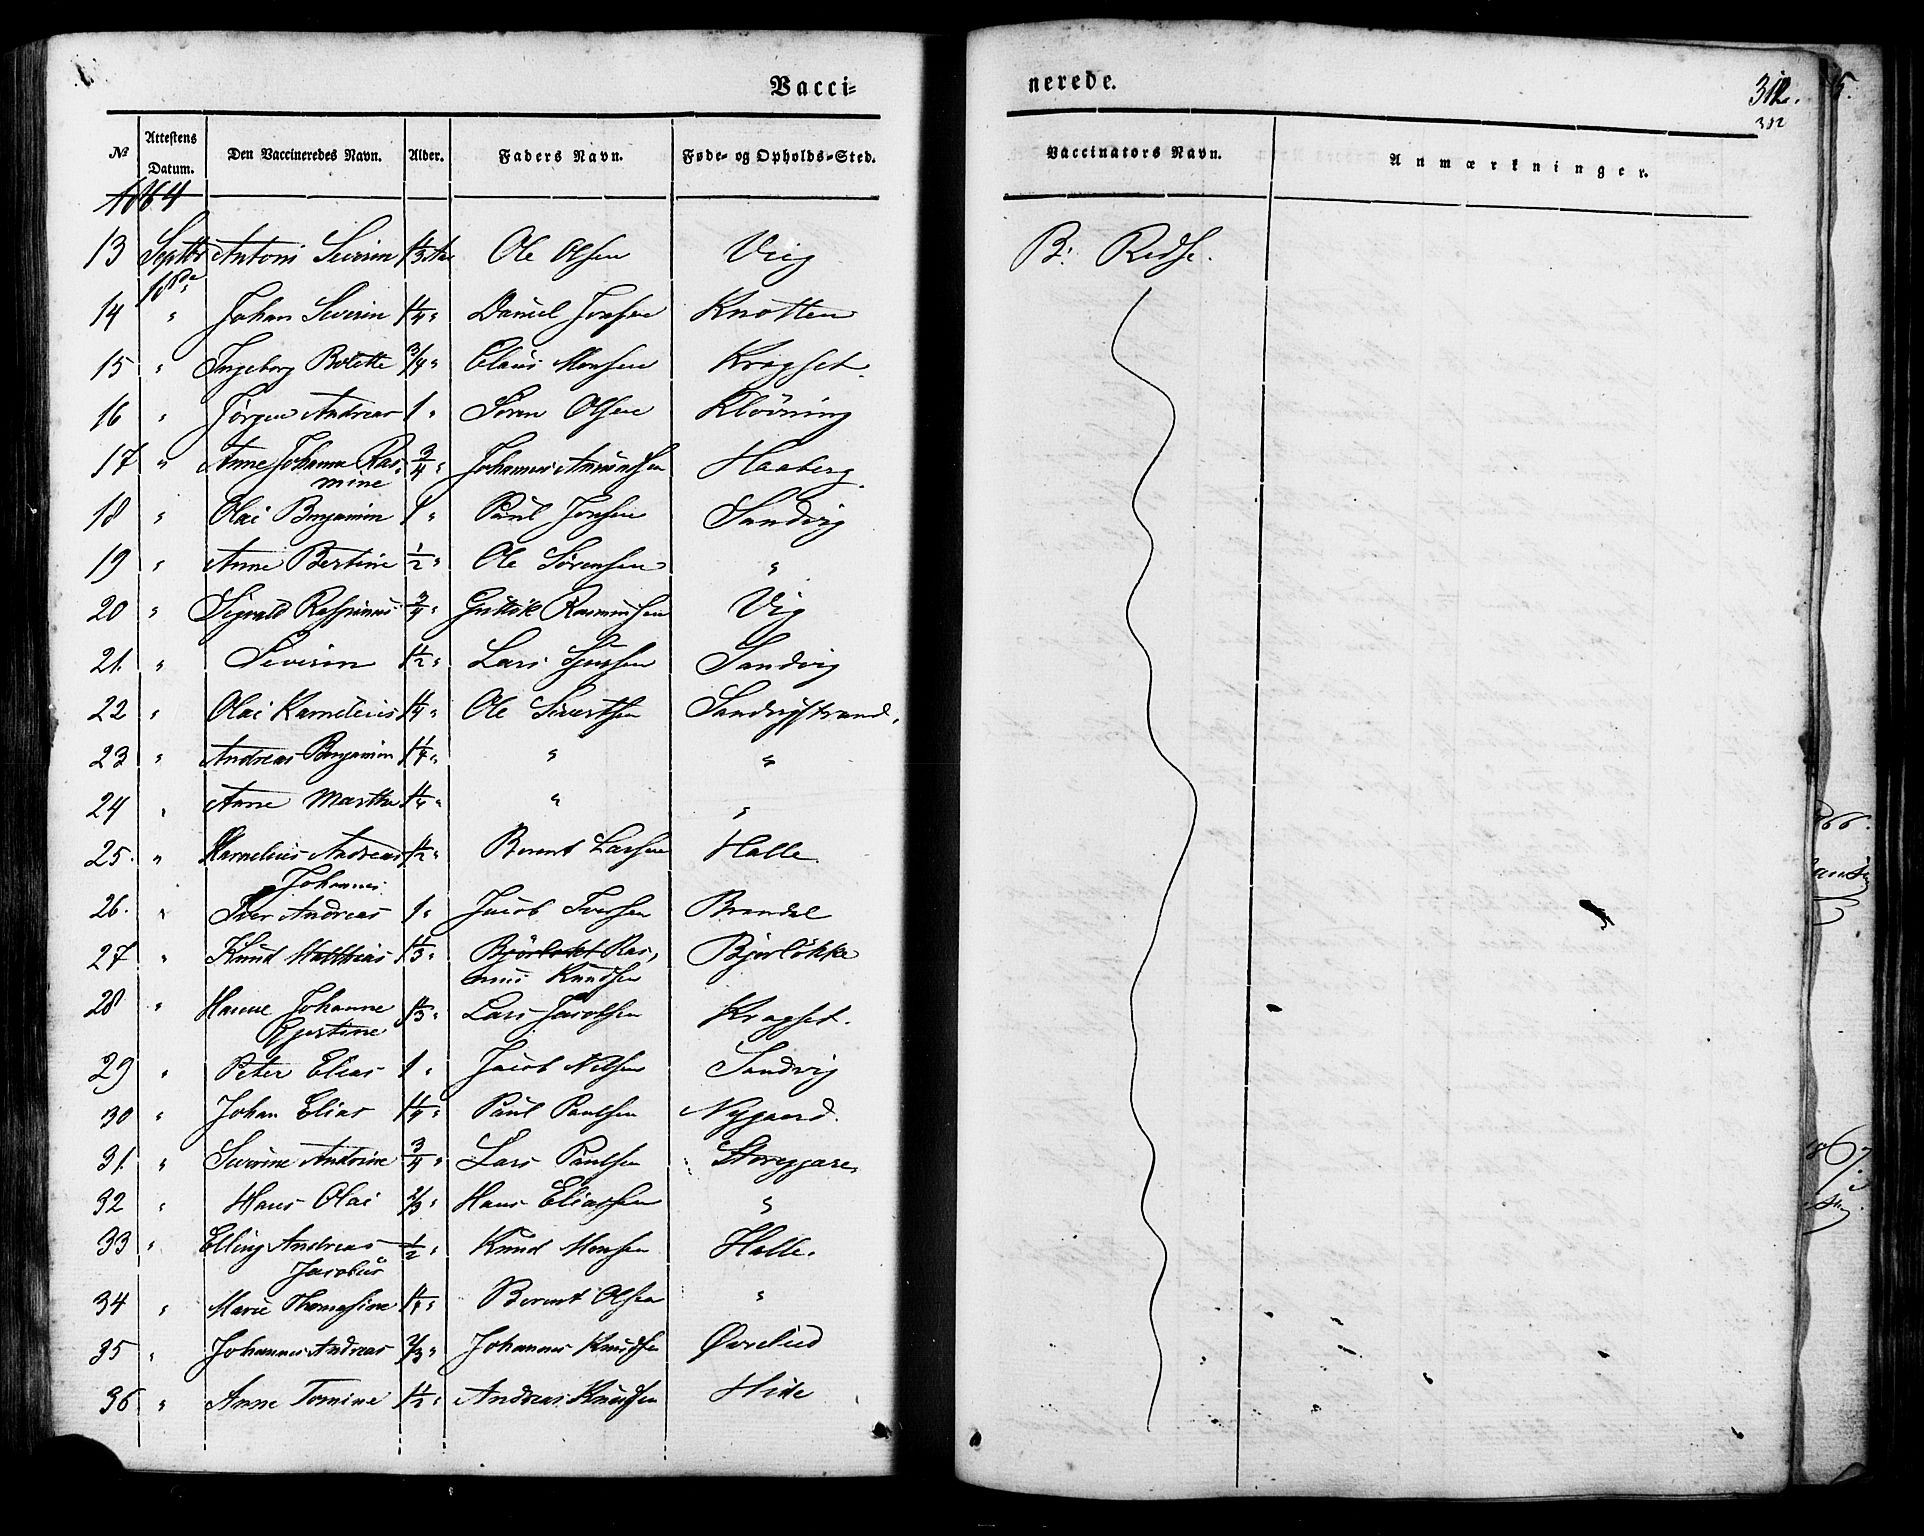 Vacci-
nerede.
312.
312
№ Attestens Datum. Den Vaccineredes Navn. Alder. Faders Navn. Føde- og Opholds-Sted. Vaccinators Navn. Anmærkninger.
1864
13 Septbr 18de Antoni Severin 1 1/3 Aar Ole Olsen Vig B: Redse.
14 " Johan Severin 1 1/4 " Daniel Jonsen Knotten
15 " Ingeborg Bolette 3/4 " Claus Monsen Kragset.
16 " Jørgen Andreas 1 " Sören Olsen Klövning
17 " Anne Johanne Ras- 3/4 " Johannes Amundsen Haaberg.
mine
18 " Olai Benjamin 1 " Paul Jonsen Sandvig
19 " Anne Bertine 1/2 " Ole Sørensen "
20 " Sigvald Rasmus 3/4 " Guttik Rasmussen Vig
21. " Severin 1 1/2 " Lars Sjursen Sandvig
22 " Olai Karnelius 1 1/4 " Ole Sivertsen Sandvigstrand.
23 " Andreas Benjamin 1 1/4 " " "
24 " Anne Marthe 1 1/4 " " "
25. " Karnelius Andreas 1 1/2 " Bernt Larsen Halle.
Johannes
26. " Iver Andreas 1 " Jacob Iversen Brandal
27 " Knud Matthias 1 1/3 " Björlokt Ras- Bjørløkke
mus Knudsen
28 " Hanne Johanne 1 1/3 " Lars Jacobsen Kragset.
Gjertine
29 " Peter Elias 1 " Jacob Nilsen Sandvig
30 " Johan Elias 1 1/4 " Paul Paulsen Nygaard.
31. " Severine Antonie 3/4 " Lars Paulsen Storeggare,
32 " Hans Olai 2/3 " Hans Eliassen "
33 " Elling Andreas 1/2 " Knud Monsen Halle.
Jacobus
34 " Marie Thomasine 1 1/4 " Bernt Olsen "
35 " Johannes Andreas 2/3 " Johannes Knudsen Øvrelid
36 " Anne Tomine 1 1/2 " Andreas Knudsen Hide